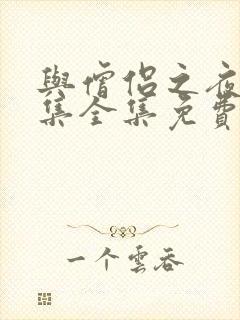 與僧侶之夜
集全集免費
一个雲吞